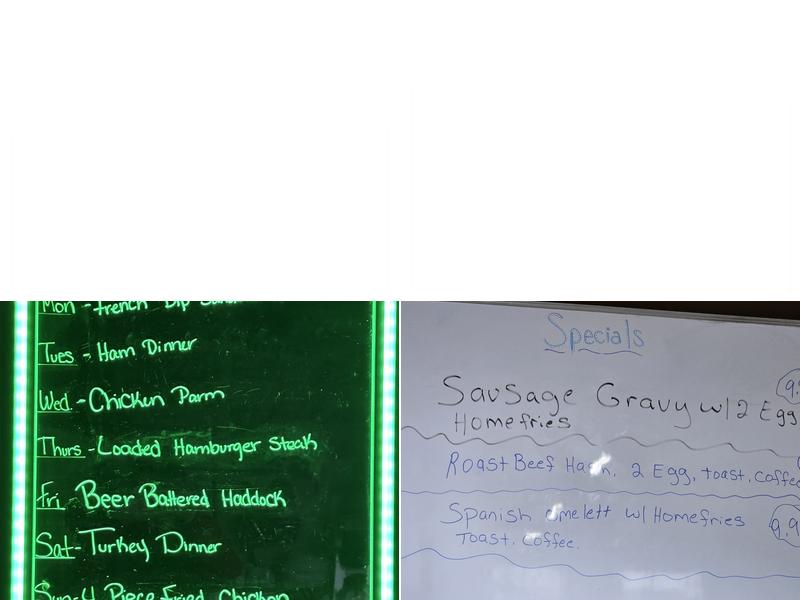 Mon - French Dip
Tues - Ham Dinner
Wed - Chicken Parm
Thurs - Loaded Hamburger Steak
Fri - Beer Battered Haddock
Sat - Turkey Dinner
Sun - 4 Piece Fried Chicken
Specials
Sausage Gravy w/ 2 Egg
Homefries
Roast Beef Hash, 2 Egg, toast, Coffee
Spanish Omelett w/ Homefries
Toast, Coffee.